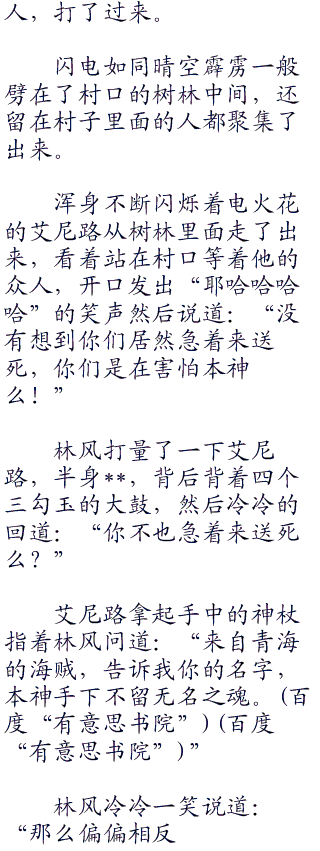 人，打了过来。
闪电如同晴空霹雳一般
劈在了村口的树林中间，还
留在村子里面的人都聚集了
出来。
浑身不断闪烁着电火花
的艾尼路从树林里面走了出
来，看着站在村口等着他的
众人，开口发出“耶哈哈哈
哈”的笑声然后说道：“没
有想到你们居然急着来送
死，你们是在害怕本神
么！”
林风打量了一下艾尼
路，半身**，背后背着四个
三勾玉的大鼓，然后冷冷的
回道：“你不也急着来送死
么？”
艾尼路拿起手中的神杖
指着林风问道：“来自青海
的海贼，告诉我你的名字，
本神手下不留无名之魂。(百
度“有意思书院”)(百度
“有意思书院”)”
林风冷冷一笑说道：
“那么偏偏相反